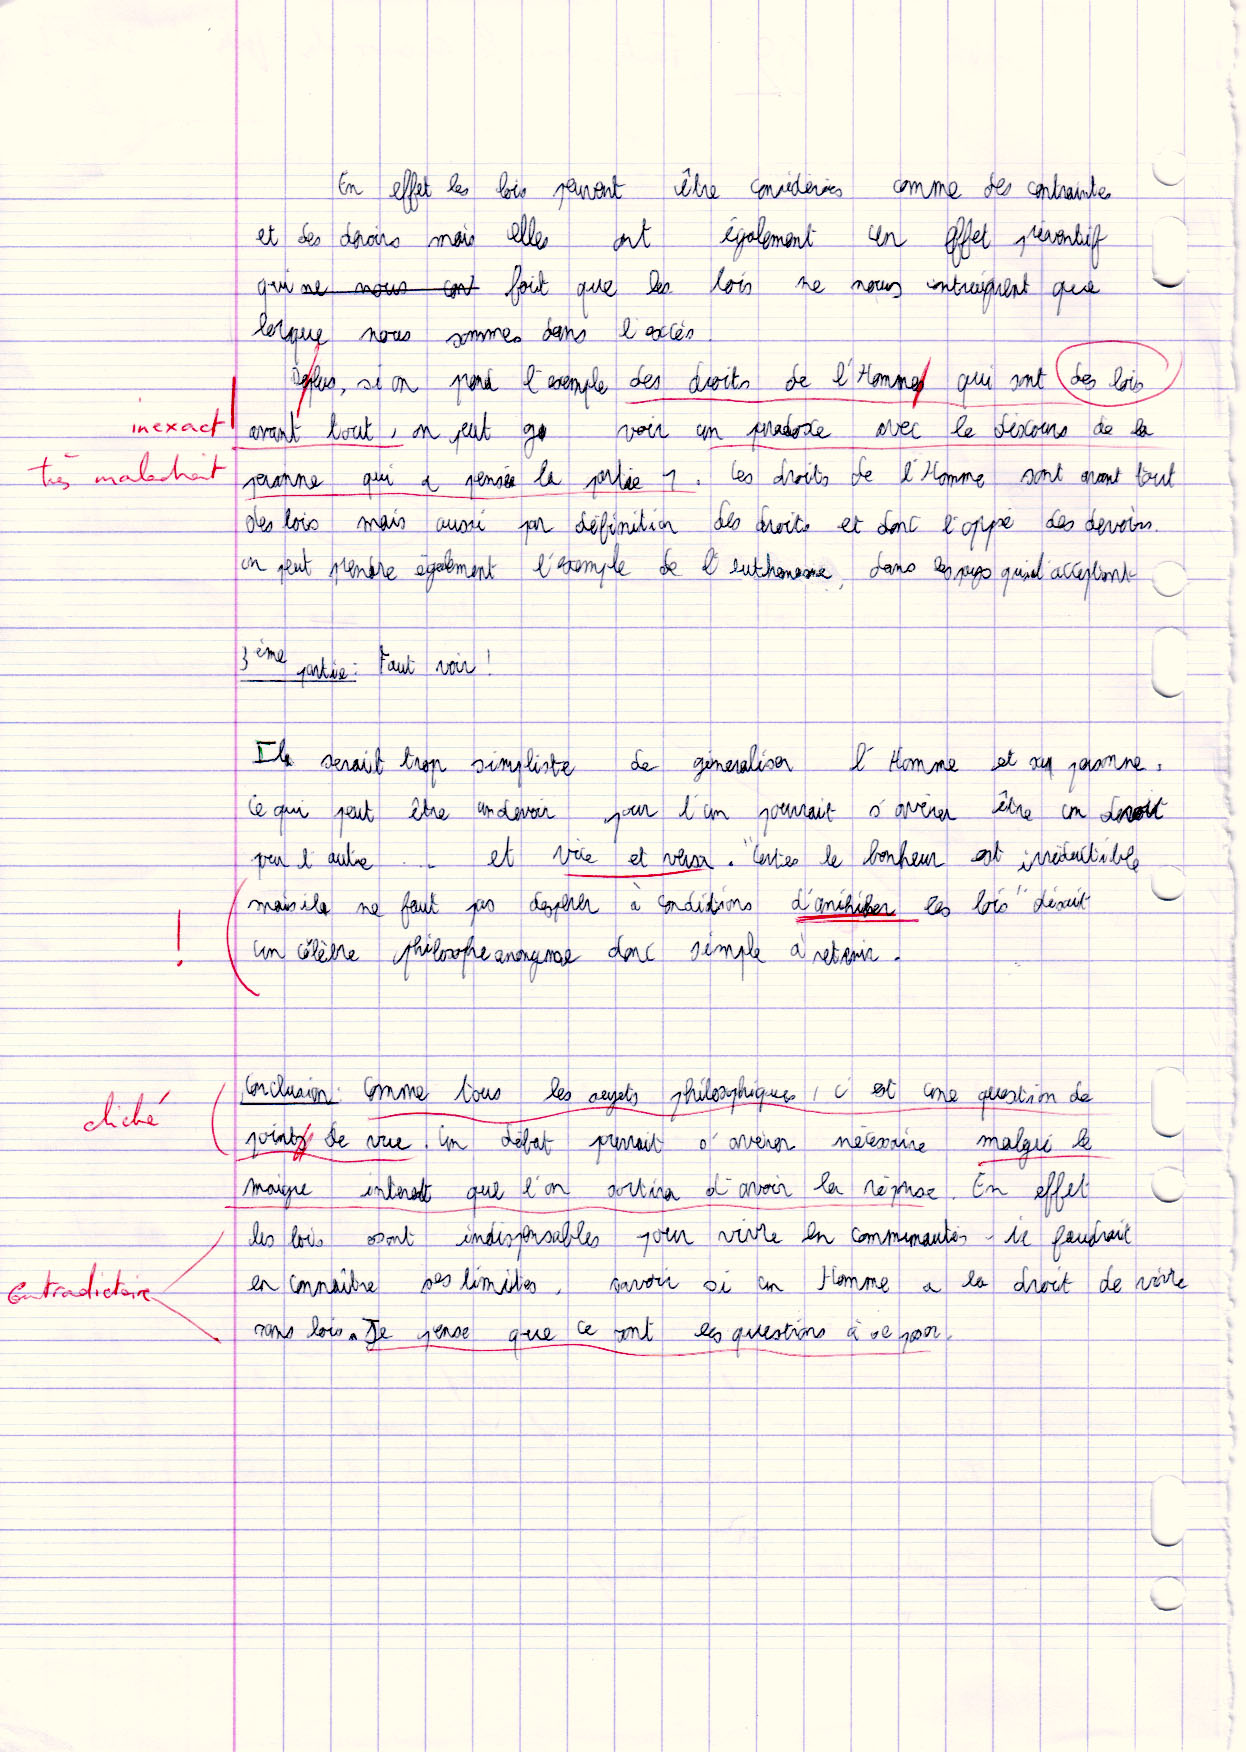 En effet les lois peuvent être considérées comme des contraintes
et des devoirs mais elles ont également un effet préventif
qui ne nous cont fait que les lois ne nous contraignent que
lorsque nous sommes dans l'excès.
De plus, si on prend l'exemple des droits de l'Hommes qui sont des lois
inexact avant tout, on peut voir un paradoxe avec le discours de la
très maladroit personne qui a pensée la partie 1. Les droits de l'Homme sont avant tout
des lois mais aussi par définition des droits et donc l'oppé des devoirs.
on peut prendre également l'exemple de l'euthanasie, dans les pays qui l'acceptent
3ème partie : Faut voir !
Il serait trop simpliste de généraliser l'Homme et sa personne.
Ce qui peut être un devoir pour l'un pourrait s'avérer être un droit
pour l'autre ... et vice et versa. "Certes le bonheur est irréductible
! mais il ne faut pas desppérer à conditions d'anihiler les lois" disait
un célèbre philosophe anonyme donc simple à retenir.
Conclusion : Comme tous les sujets philosophiques, c'est une question de
cliché points de vue. Un débat pourrait s'avérer nécessaire malgré le
maigre interest que l'on portera d'avoir la réponse. En effet
les lois sont indispensables pour vivre en communautés. il faudrait
contradictoire en connaître ses limites, savoir si un Homme a le droit de vivre
sans lois. Je pense que ce sont les questions à se poser.